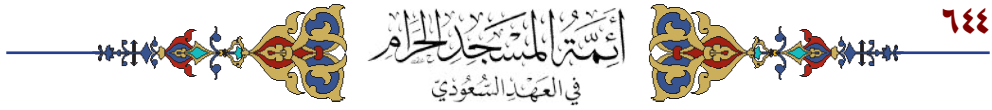 ٦٤٤
أَئِمَّةُ المَسْجِدِ الحَرَامِ
فِي العَهْدِ السُّعُودِيّ